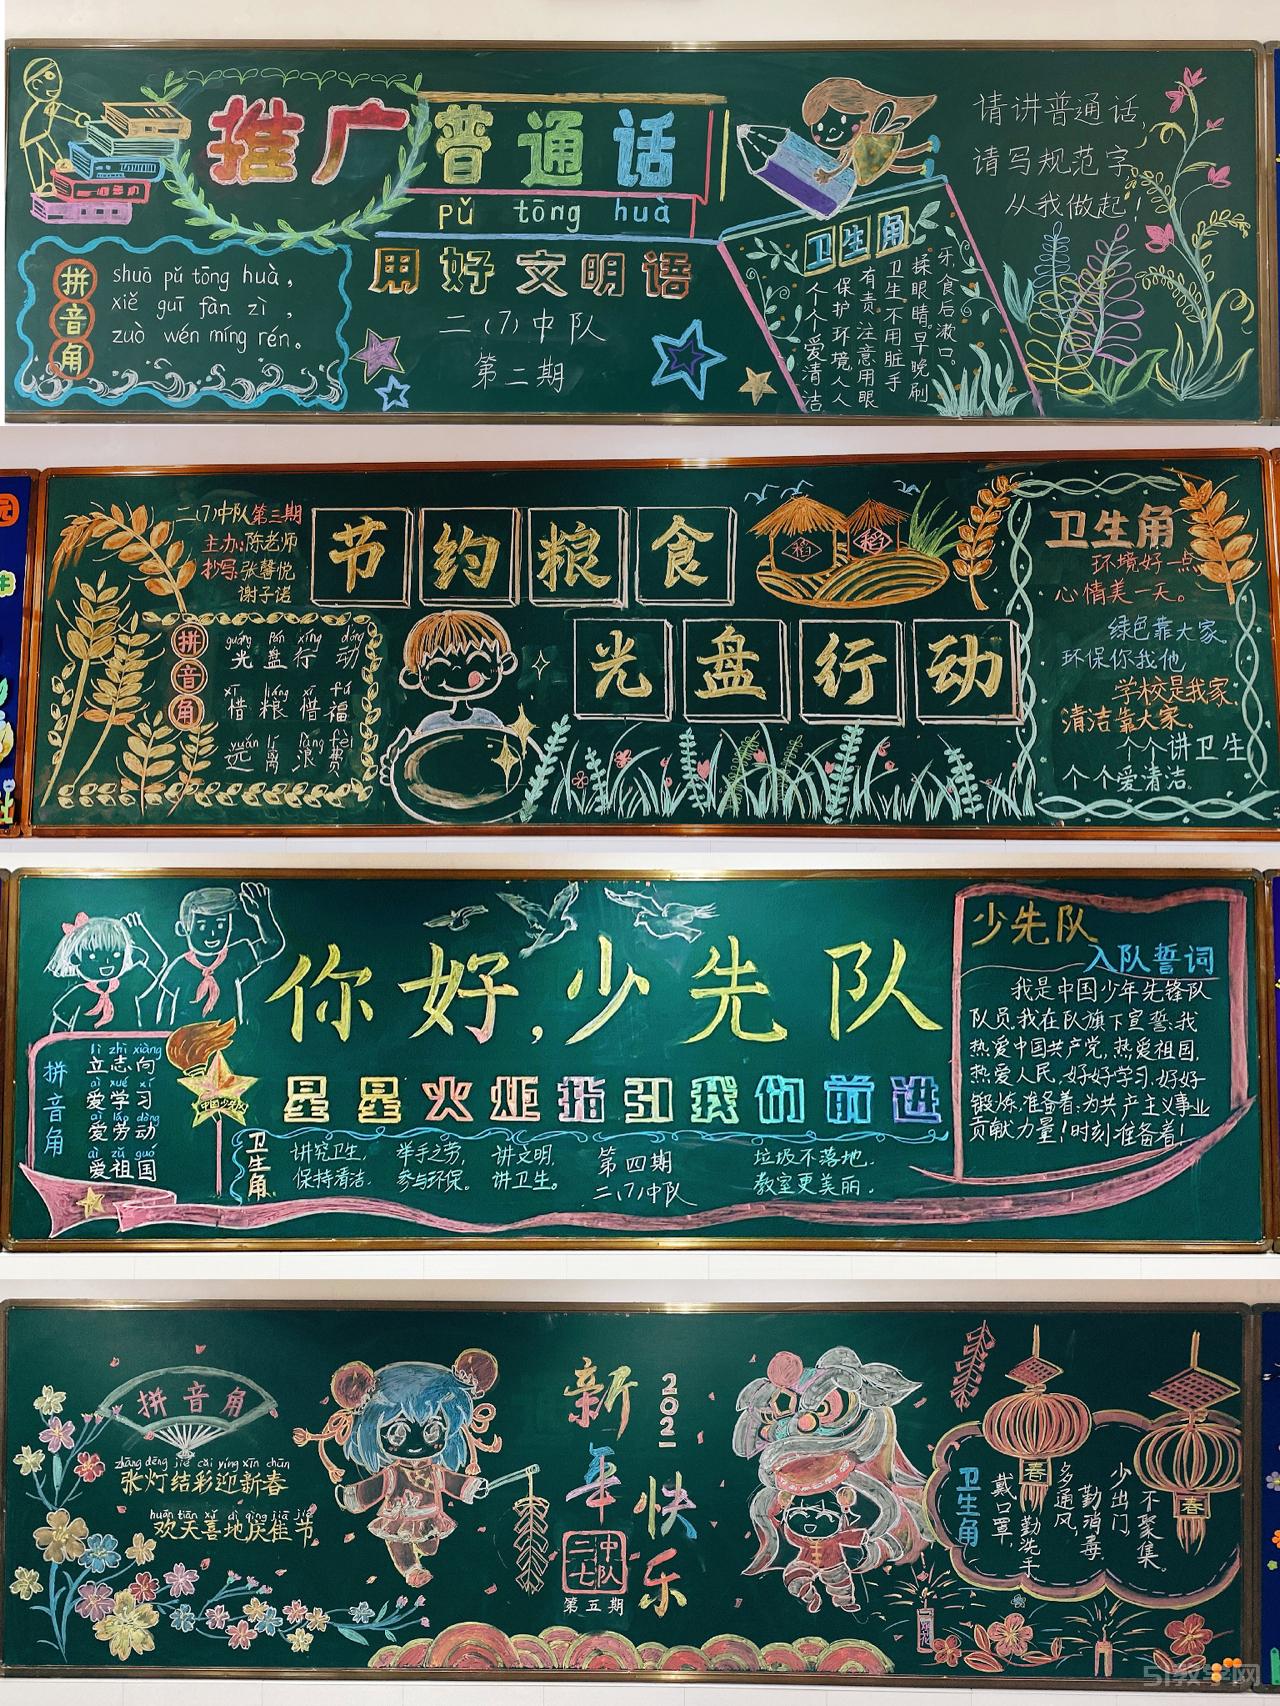 推广普通话
pǔ tōng huà
用好文明语
二(7)中队
第二期
拼音角
shuō pǔ tōng huà,
xiě guī fàn zì,
zuò wén míng rén。
卫生角
牙,食后漱口。
揉眼睛早晚刷
卫生不用脏手
有责注意用眼
保护环境人人
个个爱清洁
请讲普通话,
请写规范字,
从我做起!
二(7)中队第三期
主办:陈老师
抄写:张馨悦
谢子诺
节约粮食
光盘行动
稻 稻
拼音角
guāng pán xíng dòng
光盘行动
xī liáng xī fú
惜粮惜福
yuǎn lí làng fèi
远离浪费
卫生角
环境好一点
心情美一天。
绿色靠大家
环保你我他
学校是我家,
清洁靠大家。
个个讲卫生
个个爱清洁。
你好,少先队
星星火炬指引我们前进
拼音角
lì zhì xiàng
立志向
ài xué xí
爱学习
ài láo dòng
爱劳动
ài zǔ guó
爱祖国
中国少先队
卫生角
讲究卫生,
保持清洁.
举手之劳,
参与环保。
讲文明,
讲卫生。
第四期
二(7)中队
垃圾不落地.
教室更美丽.
少先队
入队誓词
我是中国少年先锋队
队员.我在队旗下宣誓:我
热爱中国共产党,热爱祖国,
热爱人民,好好学习,好好
锻炼,准备着:为共产主义事业
贡献力量!时刻准备着!
拼音角
zhāng dēng jié cǎi yíng xīn chūn
张灯结彩迎新春
huān tiān xǐ dì qìng jiā jié
欢天喜地庆佳节
新年快乐
2021
二七中队
第五期
春
春
卫生角
戴口罩,勤洗手
多通风,勤消毒.
少出门不聚集。
51教学网